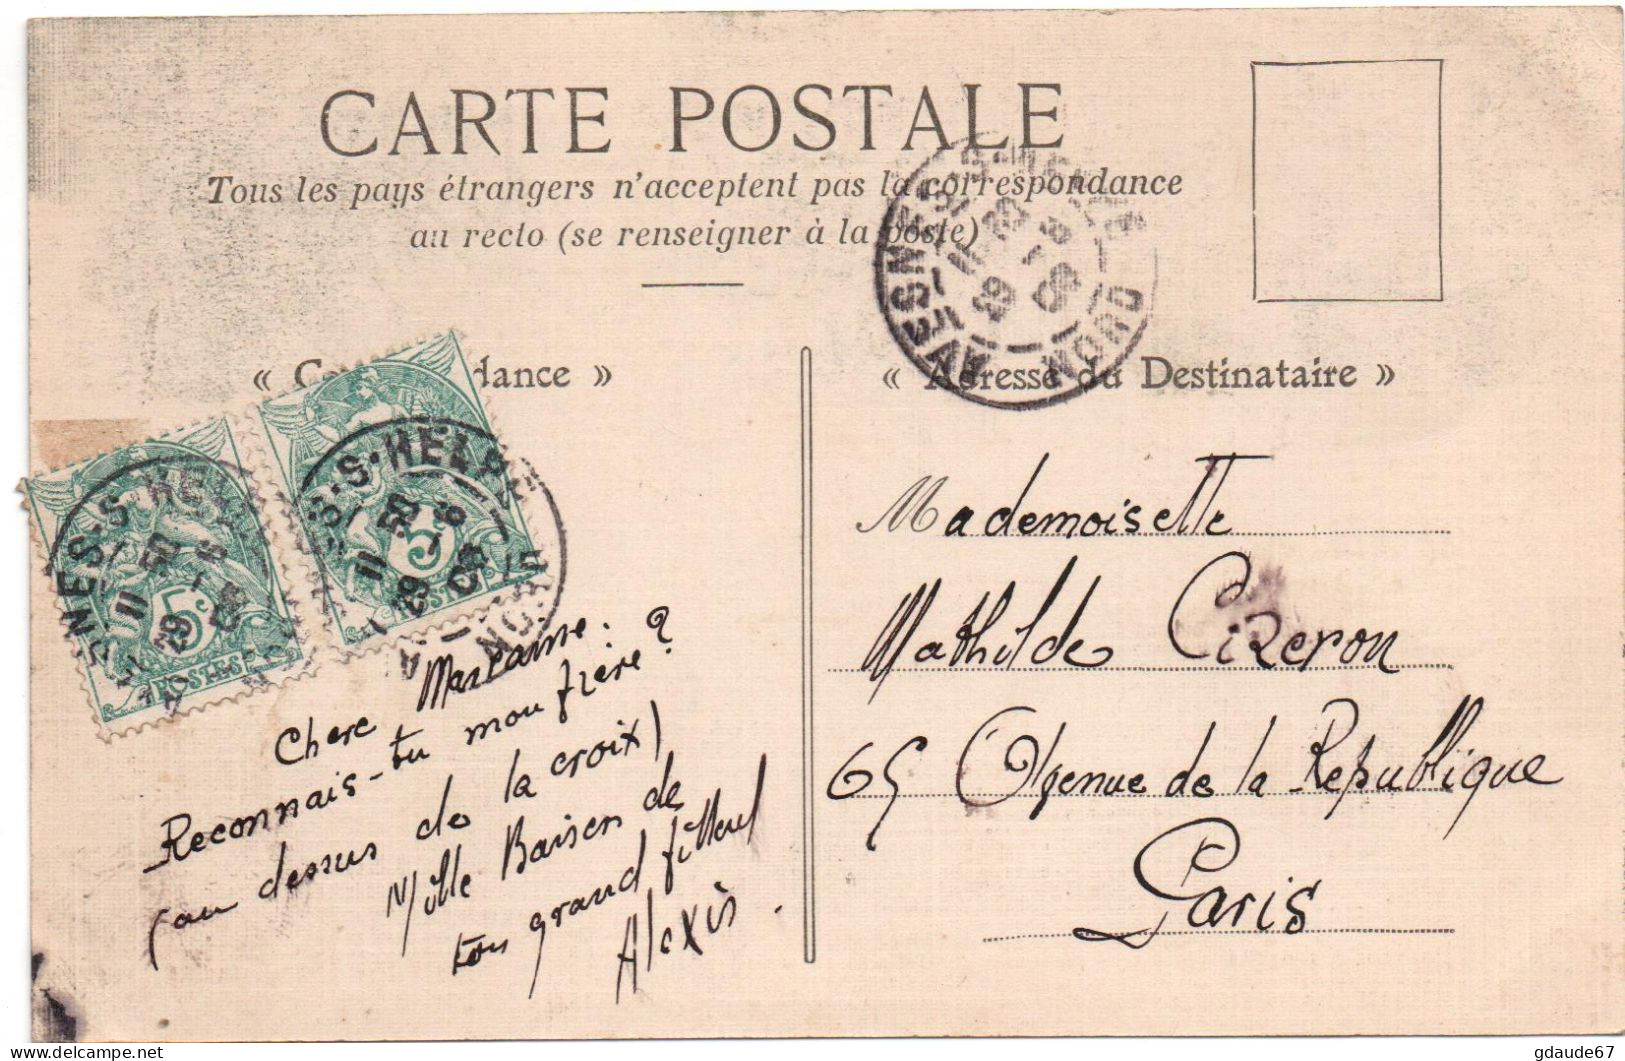 CARTE POSTALE
Tous les pays étrangers n'acceptent pas la correspondance
au recto (se renseigner à la poste)
« Co dance »
« Adresse du Destinataire »
AVESNES-S-HELPE
11 50
29 -6
08
NORD
5c
POSTES
5c
POSTES
S-S-HELPE
11 50
29 -6
08
NORD
NES-S-HELPE
11 50
29 -6
Chere Marraine.
Reconnais-tu mon frère ?
(au dessus de la croix)
Mille Baisers de
ton grand filleul
Alexis.
Mademoiselle
Mathilde Cizeron
65 Avenue de la République
Paris
delcampe.net
gdaude67